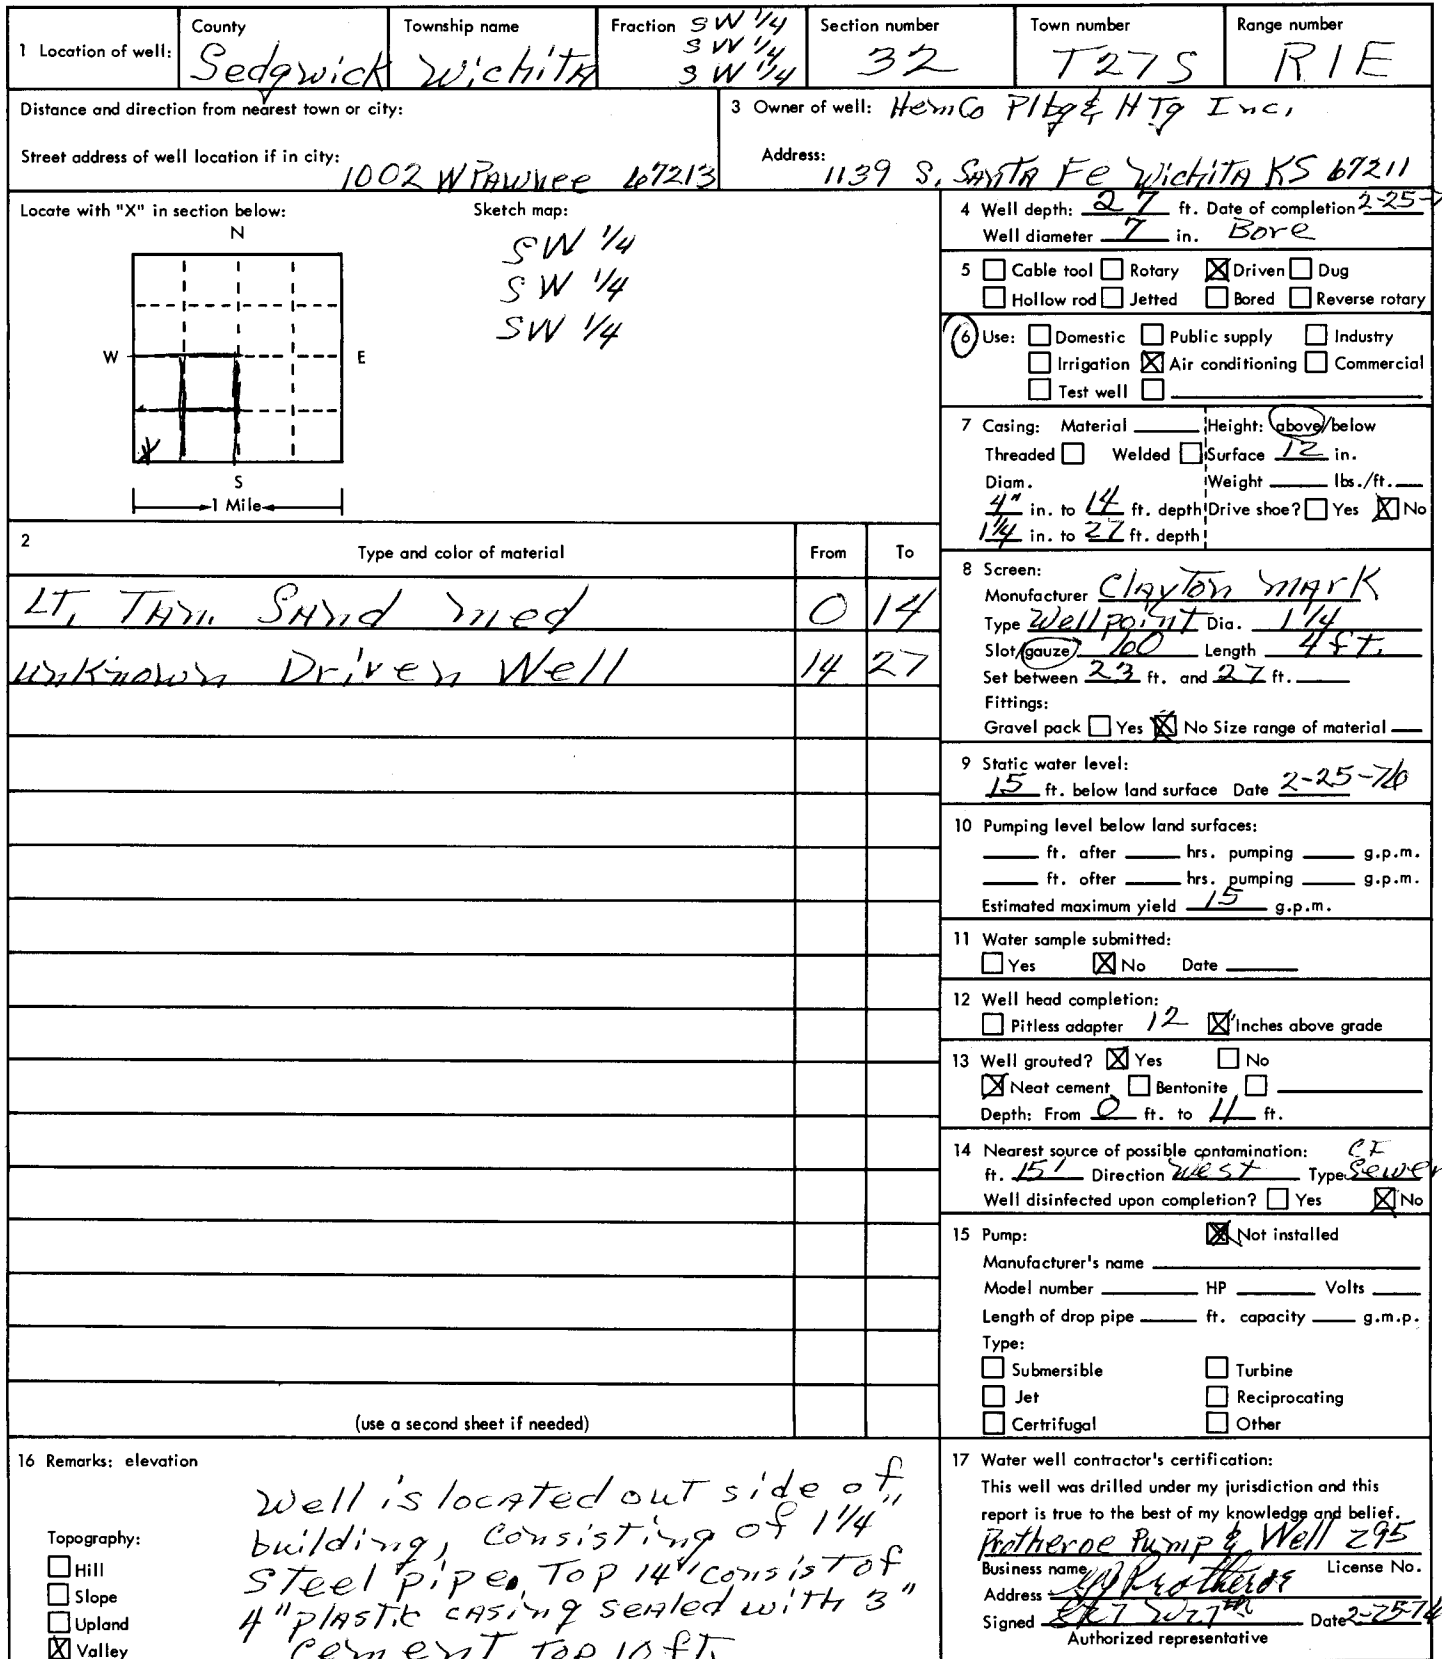 1 Location of well: County Sedgwick Township name Wichita Fraction SW 1/4 SW 1/4 SW 1/4 Section number 32 Town number T27S Range number R1E
Distance and direction from nearest town or city:
Street address of well location if in city: 1002 W Pawnee 67213
3 Owner of well: HemCo Plbg & HTg Inc.
Address: 1139 S. Santa Fe Wichita KS 67211
Locate with "X" in section below:
N
W E
S
1 Mile
X
Sketch map:
SW 1/4
SW 1/4
SW 1/4
4 Well depth: 27 ft. Date of completion 2-25-7
Well diameter 7 in. Bore
5 ☐ Cable tool ☐ Rotary ☒ Driven ☐ Dug
☐ Hollow rod ☐ Jetted ☐ Bored ☐ Reverse rotary
6 Use: ☐ Domestic ☐ Public supply ☐ Industry
☐ Irrigation ☒ Air conditioning ☐ Commercial
☐ Test well ☐
7 Casing: Material Height: above/below
Threaded ☐ Welded ☐ Surface 12 in.
Diam. Weight lbs./ft.
4" in. to 14 ft. depth Drive shoe? ☐ Yes ☒ No
1 1/4 in. to 27 ft. depth
2 Type and color of material From To
LT. TAn. SAnd med 0 14
unknown Driven Well 14 27
(use a second sheet if needed)
8 Screen:
Monufacturer Clayton Mark
Type Wellpoint Dia. 1 1/4
Slot/gauze 60 Length 4 ft.
Set between 23 ft. and 27 ft.
Fittings:
Gravel pack ☐ Yes ☒ No Size range of material
9 Static water level:
15 ft. below land surface Date 2-25-76
10 Pumping level below land surfaces:
ft. after hrs. pumping g.p.m.
ft. ofter hrs. pumping g.p.m.
Estimated maximum yield 15 g.p.m.
11 Water sample submitted:
☐ Yes ☒ No Date
12 Well head completion:
☐ Pitless adapter 12 ☒ Inches above grade
13 Well grouted? ☒ Yes ☐ No
☒ Neat cement ☐ Bentonite ☐
Depth: From 0 ft. to 11 ft.
14 Nearest source of possible contamination: CI
ft. 15' Direction West Type Sewer
Well disinfected upon completion? ☐ Yes ☒ No
15 Pump: ☒ Not installed
Manufacturer's name
Model number HP Volts
Length of drop pipe ft. capacity g.m.p.
Type:
☐ Submersible ☐ Turbine
☐ Jet ☐ Reciprocating
☐ Certrifugal ☐ Other
16 Remarks: elevation
Well is located out side of
building, Consisting of 1 1/4"
Steel pipe. Top 14' consist of
4" plastic casing sealed with 3"
cement Top 10 ft.
Topography:
☐ Hill
☐ Slope
☐ Upland
☒ Valley
17 Water well contractor's certification:
This well was drilled under my jurisdiction and this
report is true to the best of my knowledge and belief.
Protheroe Pump & Well 295
Business name License No.
Address Protheroe
Signed Date 2-25-76
Authorized representative